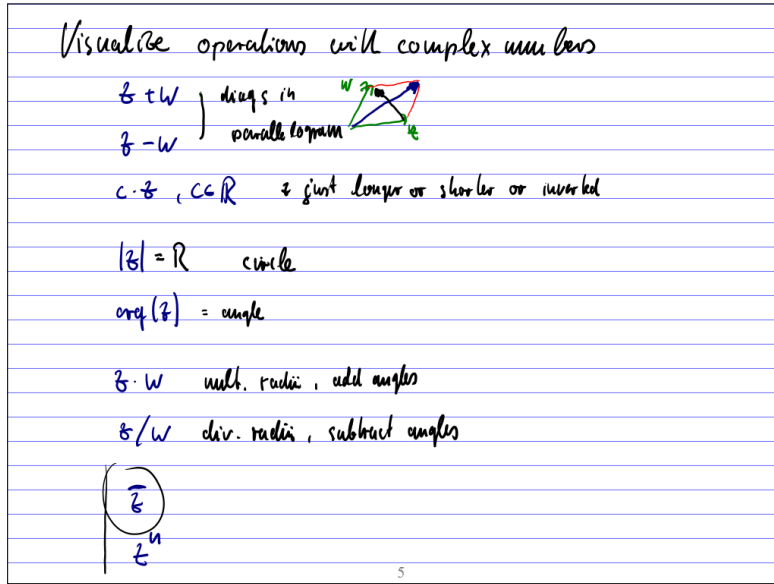 Visualize operations with complex numbers
z + w } diags in
z - w parallelogram
w z
c · z , c ∈ ℝ z just longer or shorter or inverted
|z| = R circle
arg(z) = angle
z · w mult. radii , add angles
z / w div. radii , subtract angles
z̄
zⁿ
5